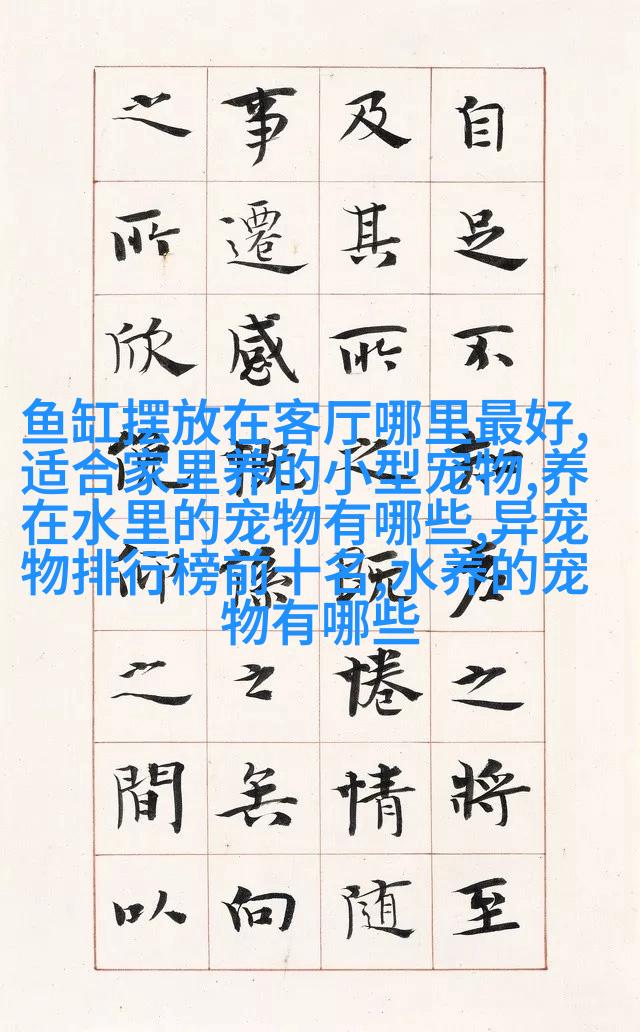 自足不知老之將至
及其所之既倦情隨
事遷感慨係之矣向
之所欣俛仰之間以
鱼缸摆放在客厅哪里最好,
适合家里养的小型宠物,养
在水里的宠物有哪些,异宠
物排行榜前十名,水养的宠
物有哪些